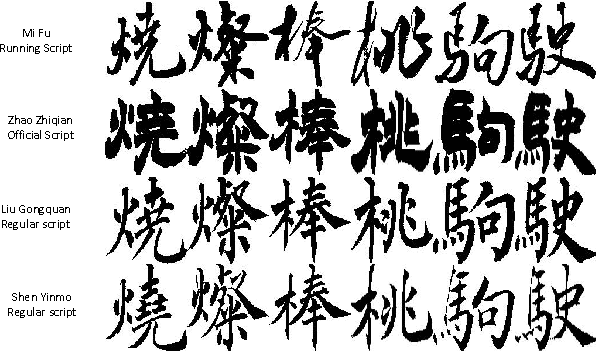 Mi Fu
Running Script
燒燦棒桃駒駛
Zhao Zhiqian
Official Script
燒燦棒桃駒駛
Liu Gongquan
Regular script
燒燦棒桃駒駛
Shen Yinmo
Regular script
燒燦棒桃駒駛